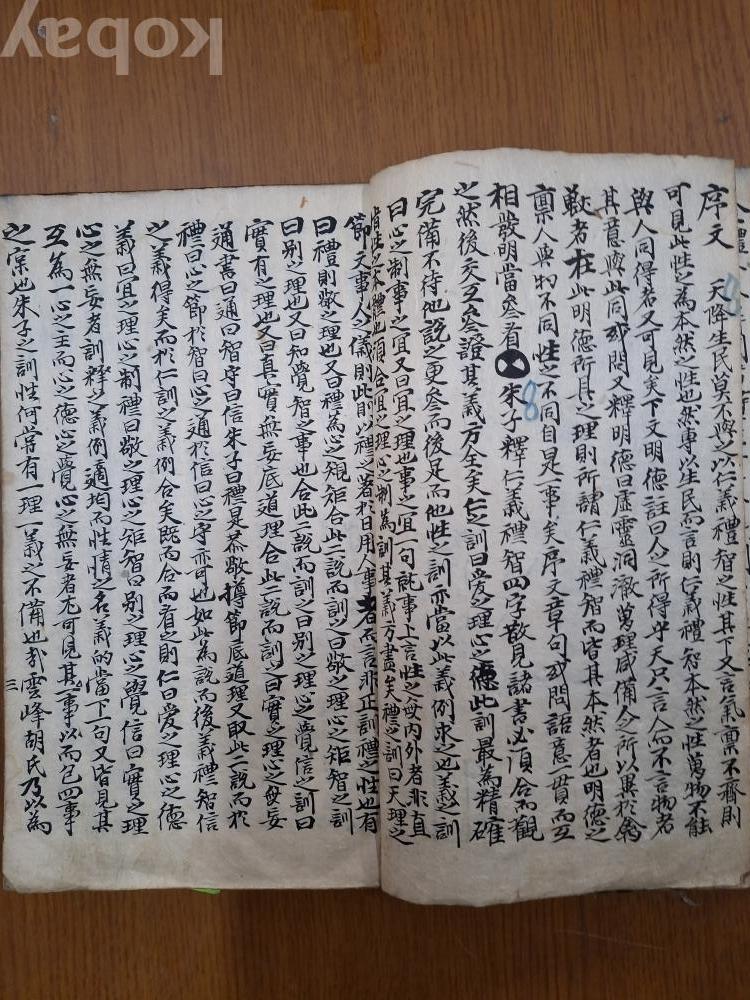 序文 天降生民莫不與之以仁義禮智之性其下又言氣禀不齊則
可見此性之為本然之性也然專以生民而言則仁義禮智本然之性萬物不能
與人同得者又可見矣下文明德註曰人之所得乎天只言人而不言物者
其意與此同或問又釋明德曰虛靈洞澈萬理咸備今之所以異於禽
獸者在此明德所具之理則所謂仁義禮智而皆其本然者也明德之
禀人與物不同性之不同自是一事矣序文章句或問語意一貫而互
相發明當叅看 朱子釋仁義禮智四字散見諸書必須合而觀
之然後交互叅證其義方全矣仁之訓曰愛之理心之德此訓最為精確
完備不待他說之更叅而後足而他性之訓亦當以此義例求之也義之訓
曰心之制事之宜又曰宜之理也事之宜一句就事上言性之毋內外者非直
指性之本體也須合宜之理心之制為訓其義方盡矣禮之訓曰天理之
節文事人之儀則此則以禮之著於日用人事者而言非正訓禮之性也有
曰禮則敬之理也又曰禮為心之規矩合此二說而訓之曰敬之理心之矩智之訓
曰別之理也又曰知覺智之事也合此二說而訓之曰別之理心之覺信之訓曰
實有之理也又曰真實無妄底道理合此二說而訓曰實之理心之毋妄
通書曰通曰智守曰信朱子曰禮是恭敬撙節底道理又取此二說而於
禮曰心之節於智曰心之通於信曰心之守亦可也如此為說而後義禮智信
之義得矣而於仁訓之義例合矣既而合而看之則仁曰愛之理心之德
義曰宜之理心之制禮曰敬之理心之矩智曰別之理心之覺信曰實之理
心之無妄者訓釋之義例適均而性情之名義的當下一句又皆見其
互為一心之主而心之德心之覺心之無妄者尤可見其一事以而包四事
之宗也朱子之訓性何嘗有一理一義之不備也哉雲峰胡氏乃以為
三
8
8
kobay